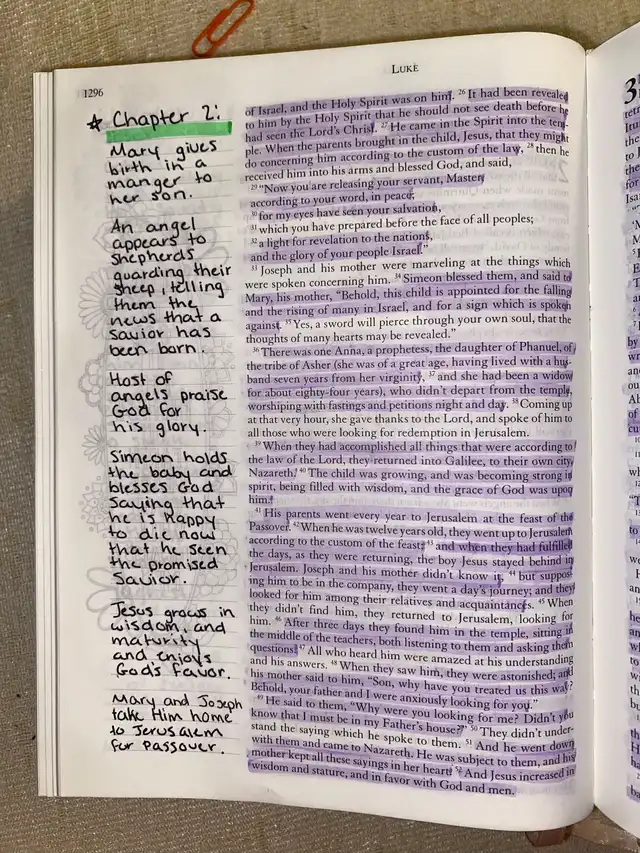 LUKE
1296
* Chapter 2:
Mary gives
birth in a
manger to
her son.
An angel
appears to
shepherds
guarding their
sheep, telling
them the
news that a
Savior has
been born.
Host of
angels praise
God for
his glory.
Simeon holds
the baby and
blesses God
saying that
he is Happy
to die now
that he seen
the promised
Savior.
Jesus grows in
wisdom, and
maturity
and enjoys
God's Favor.
Mary and Joseph
take Him home
to Jerusalem
for Passover.
of Israel, and the Holy Spirit was on him. 26 It had been revealed
to him by the Holy Spirit that he should not see death before he
had seen the Lord's Christ. 27 He came in the Spirit into the tem-
ple. When the parents brought in the child, Jesus, that they might
do concerning him according to the custom of the law, 28 then he
received him into his arms and blessed God, and said,
29 "Now you are releasing your servant, Master,
according to your word, in peace;
30 for my eyes have seen your salvation,
31 which you have prepared before the face of all peoples;
32 a light for revelation to the nations,
and the glory of your people Israel."
33 Joseph and his mother were marveling at the things which
were spoken concerning him. 34 Simeon blessed them, and said to
Mary, his mother, "Behold, this child is appointed for the falling
and the rising of many in Israel, and for a sign which is spoken
against. 35 Yes, a sword will pierce through your own soul, that the
thoughts of many hearts may be revealed."
36 There was one Anna, a prophetess, the daughter of Phanuel, of
the tribe of Asher (she was of a great age, having lived with a hus-
band seven years from her virginity, 37 and she had been a widow
for about eighty-four years), who didn't depart from the temple,
worshiping with fastings and petitions night and day. 38 Coming up
at that very hour, she gave thanks to the Lord, and spoke of him to
all those who were looking for redemption in Jerusalem.
39 When they had accomplished all things that were according to
the law of the Lord, they returned into Galilee, to their own city,
Nazareth. 40 The child was growing, and was becoming strong in
spirit, being filled with wisdom, and the grace of God was upon
him.
41 His parents went every year to Jerusalem at the feast of the
Passover. 42 When he was twelve years old, they went up to Jerusalem
according to the custom of the feast; 43 and when they had fulfilled
the days, as they were returning, the boy Jesus stayed behind in
Jerusalem. Joseph and his mother didn't know it, 44 but suppos-
ing him to be in the company, they went a day's journey; and they
looked for him among their relatives and acquaintances. 45 When
they didn't find him, they returned to Jerusalem, looking for
him. 46 After three days they found him in the temple, sitting in
the middle of the teachers, both listening to them and asking them
questions. 47 All who heard him were amazed at his understanding
and his answers. 48 When they saw him, they were astonished; and
his mother said to him, "Son, why have you treated us this way?
Behold, your father and I were anxiously looking for you."
49 He said to them, "Why were you looking for me? Didn't you
know that I must be in my Father's house?" 50 They didn't under-
stand the saying which he spoke to them. 51 And he went down
with them and came to Nazareth. He was subject to them, and his
mother kept all these sayings in her heart. 52 And Jesus increased in
wisdom and stature, and in favor with God and men.